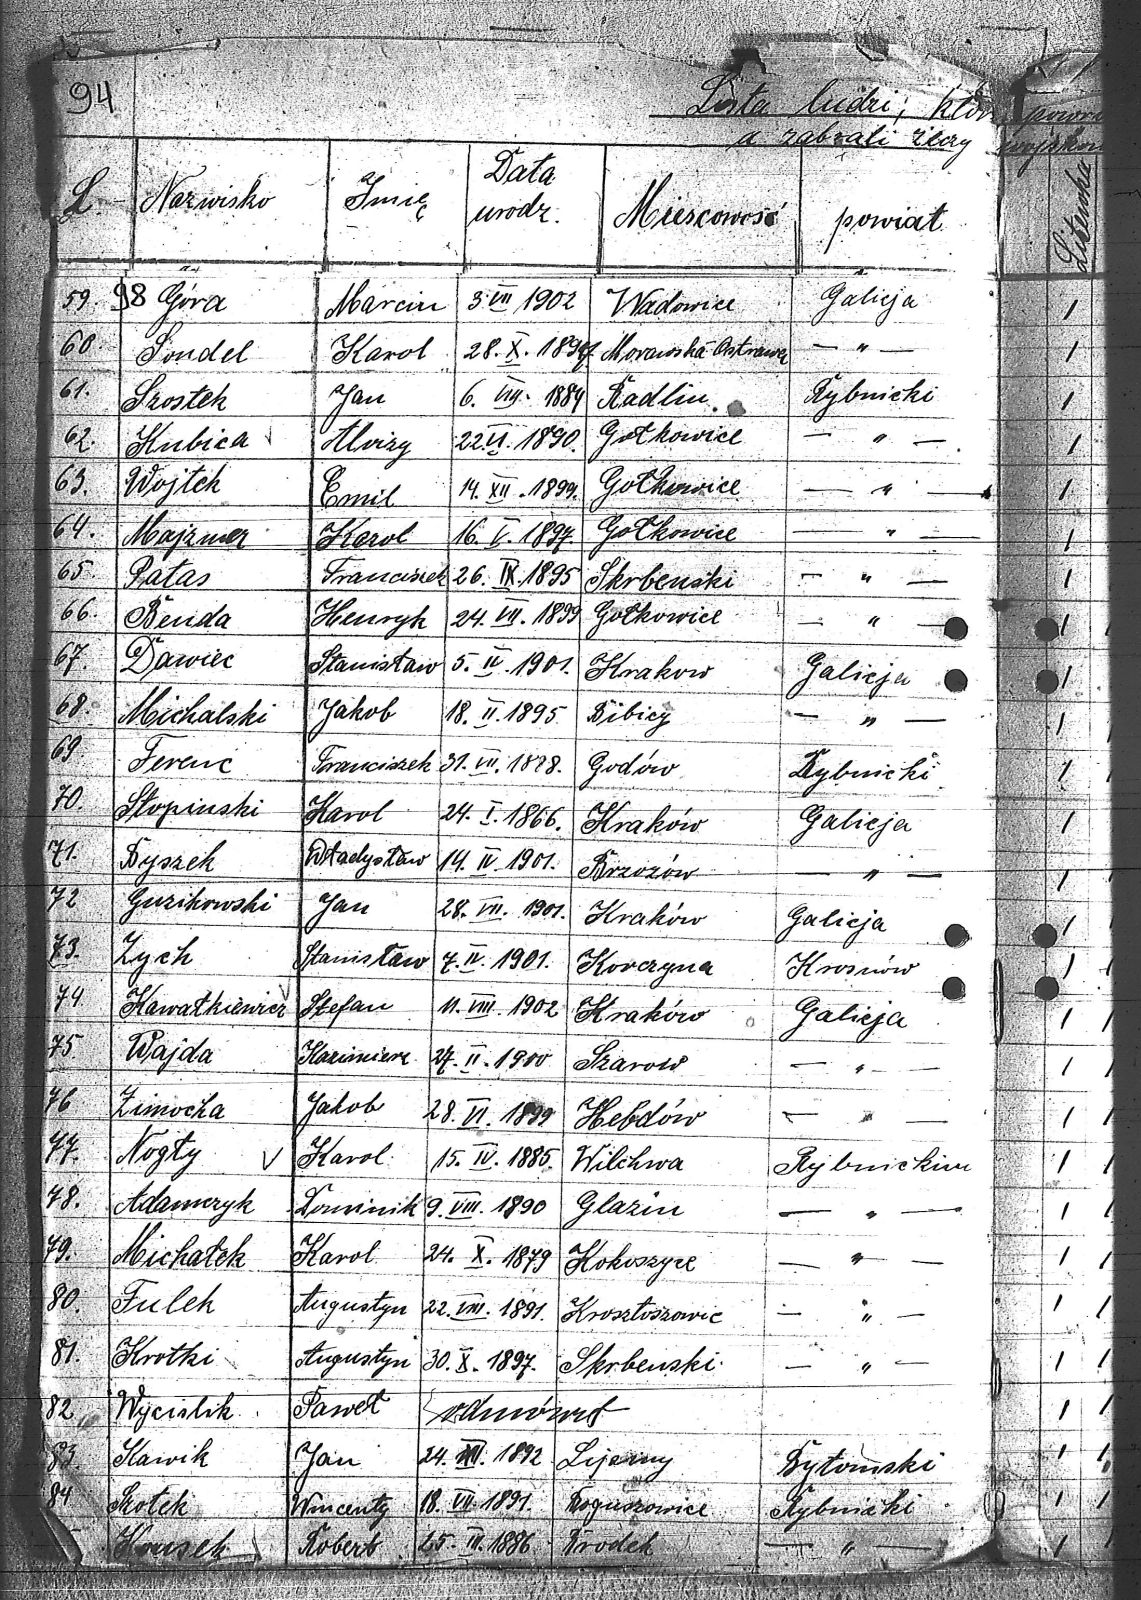 94
Lista ludzi, któr powró
a zabrali rzeczy wojskow
L. Nazwisko Imię Data urodz. Miescowość powiat
59. 98 Góra Marcin 3 VII 1902 Wadowice Galicja 1
60. Sondel Karol 28. X. 1897 Morawska Ostrawa — " — 1
61. Szostek Jan 6. VIII. 1884 Radlin. Rybnicki 1
62. Kubica Alojzy 22. VI. 1890. Gołkowice — " — 1
63. Wojtek Emil 14. XII. 1899. Gołkowice — " — 1
64. Majzner Karol 16. V. 1897 Gołkowice — " — 1
65. Patas Franciszek 26. IX. 1895 Skrbenski — " — 1
66. Benda Henryk 24. VII. 1899 Gołkowice — " — 1
67. Dawiec Stanisław 5. IV. 1901. Krakow Galicja 1
68. Michalski Jakob 18. II. 1895 Bibicy — " — 1
69. Ferenc Franciszek 31. VII. 1888. Godów Rybnicki 1
70. Stopinski Karol 24. I. 1866. Kraków Galicja 1
71. Byszek Władysław 14. IV. 1901. Brzozów — " — 1
72 Guzikowski Jan 28. VII. 1901. Kraków Galicja 1
73. Zych Stanisław 7. IV. 1901. Korczyna Krosnów 1
74. Kawałkiewicz Stefan 11. VIII. 1902 Kraków Galicja 1
75. Wajda Kazimierz 27. II. 1900 Szarow — " — 1
76 Zimocha Jakob 28. VI. 1899 Hebdów — " — 1
77. Nogły Karol 15. IV. 1885. Wilchwa Rybnickim 1
78. Adamczyk Dominik 9. VIII. 1890 Glazin — " — 1
79. Michałek Karol 24. X. 1879 Kokoszyce — " — 1
80. Fulek Augustyn 22. VIII. 1891. Krosztoszowic — " — 1
81. Krotki Augustyn 30. X. 1897. Skrbenski — " — 1
82 Wycislik Paweł odmówił 1
83 Kawik Jan 24. 1892 Bytomski 1
84 Skotek Wincenty 18. VII 1891. Boguszowice Rybnicki 1
Robert 25. III. 1886 Brodek — " — 1